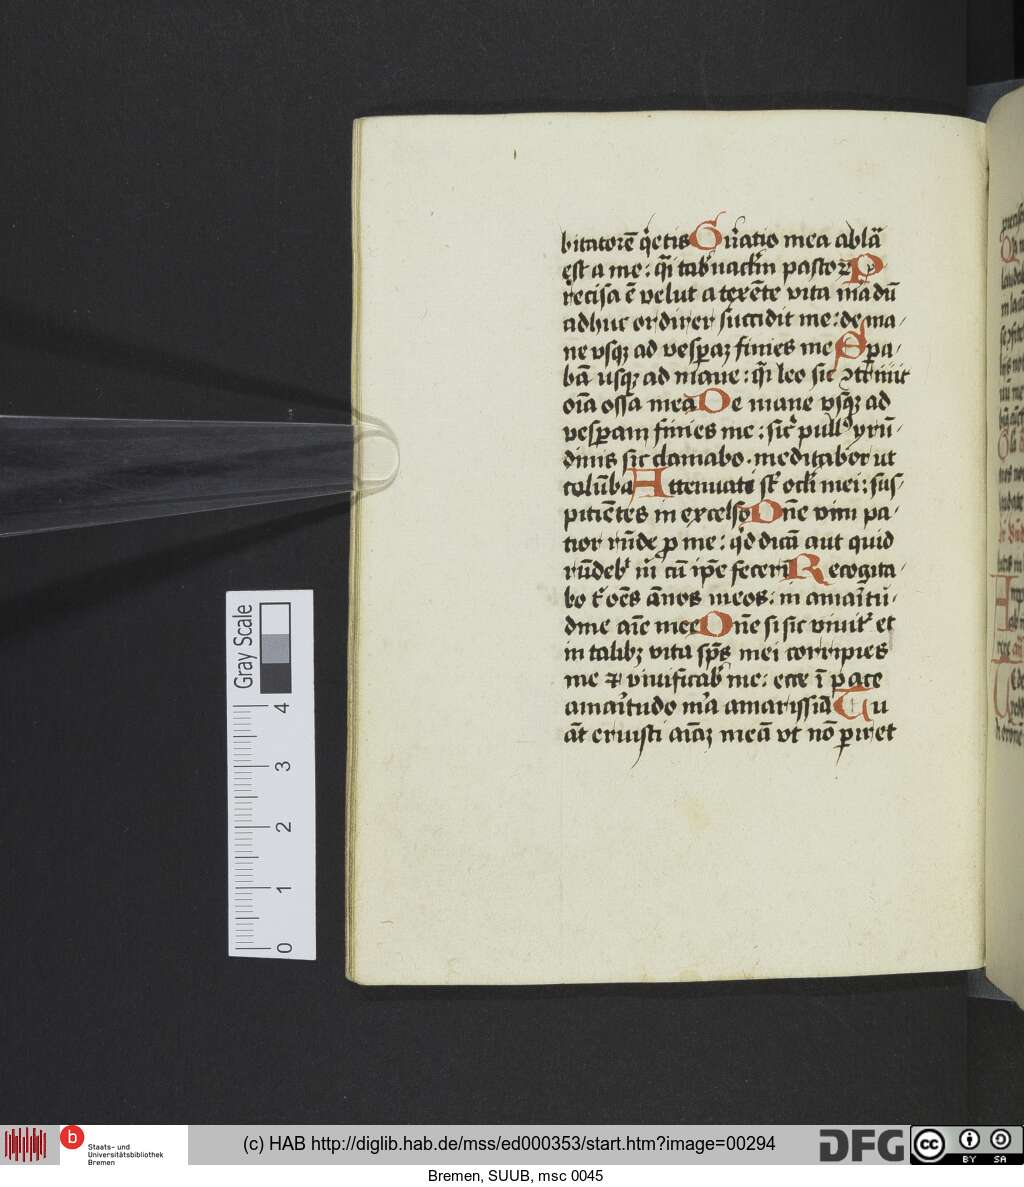 bitatorē q̄etis Gn̄atio mea ablā
est a me: q̄i tab'nac̄lm pastorꝝ P
recisa ē velut a texēte vita mea dū
adhuc ordirer succidit me: de ma
ne vsqꝫ ad vesꝑaꝫ finies me Spa
bā usqꝫ ad mane: q̄i leo sic ꝯtriuit
oīa ossa mea De mane vsqꝫ ad
vesꝑam finies me: sic' pull' yrū
dinis sic clamabo. meditabor ut
colūba Attenuati st̄ oc̄li mei: sus
piciētes in excelso Dn̄e vim pa
tior rn̄de ꝓ me: qd' dicā aut quid
rn̄deb' m' cū ip̄e fecerit Recogita
bo t' oēs ānos meos: in amāitu
dine aīe mee Dn̄e si sic viuit' et
in talibꝫ vita sp̄s mei corripies
me ⁊ viuificab' me: ecce ī pace
amāitudo m'a amarissīa Tu
āt eruisti aīaꝫ meā vt nō ꝑiret
Gray Scale
4
3
2
1
0
b
Staats- und
Universitätsbibliothek
Bremen
(c) HAB http://diglib.hab.de/mss/ed000353/start.htm?image=00294
DFG
cc
BY SA
Bremen, SUUB, msc 0045